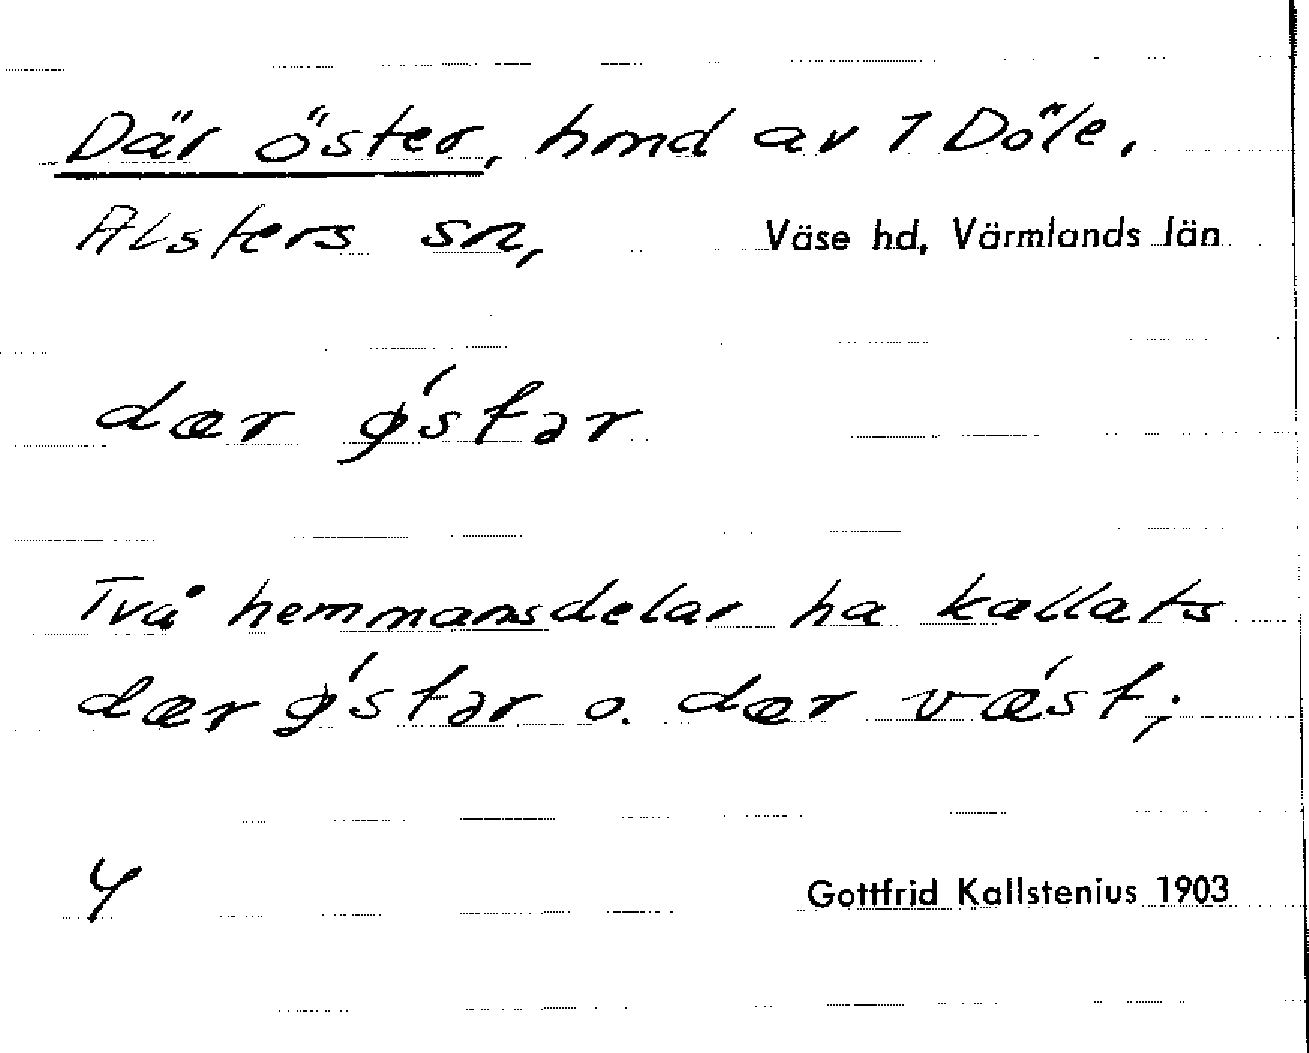 Där öster, hmd av 1 Döle,
Alsters sn, Väse hd, Värmlands län
dær ǿstər
Två hemmansdelar ha kallats
dær ǿstər o. dær væ´st;
4
Gottfrid Kallstenius 1903